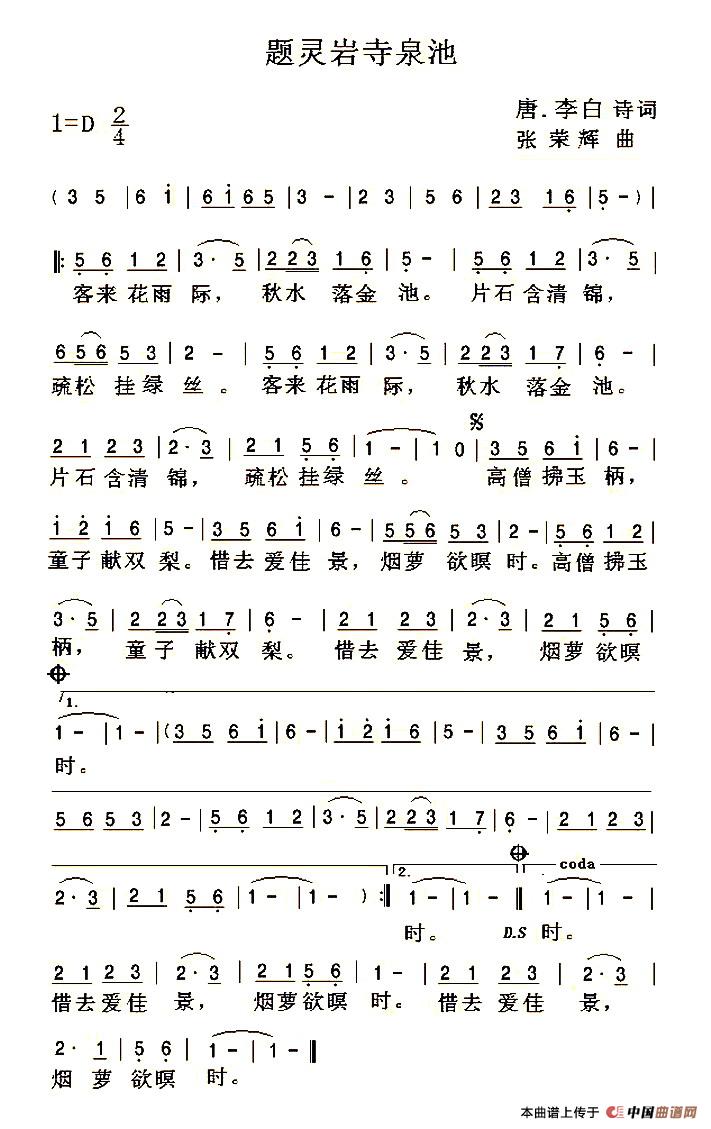 题灵岩寺泉池
唐.李白 诗词
1=D 2/4
张荣辉 曲
( 3 5 | 6 i | 6 i 6 5 | 3 - | 2 3 | 5 6 | 2 3 1 6 | 5 - ) |
‖: 5 6 1 2 | 3· 5 | 2 2 3 1 6 | 5 - | 5 6 1 2 | 3· 5 |
客来花雨际， 秋水落金池。 片石含清锦，
6 5 6 5 3 | 2 - | 5 6 1 2 | 3· 5 | 2 2 3 1 7 | 6 - |
疏松挂绿丝。 客来花雨际， 秋水落金池。
2 1 2 3 | 2· 3 | 2 1 5 6 | 1 - | 1 0 | 3 5 6 i | 6 - |
片石含清锦， 疏松挂绿丝。 高僧拂玉柄，
i 2 i 6 | 5 - | 3 5 6 i | 6 - | 5 5 6 5 3 | 2 - | 5 6 1 2 |
童子献双梨。惜去爱佳景，烟萝欲暝时。高僧拂玉
3· 5 | 2 2 3 1 7 | 6 - | 2 1 2 3 | 2· 3 | 2 1 5 6 |
柄， 童子献双梨。 惜去爱佳景， 烟萝欲暝
1.
1 - | 1 - | ( 3 5 6 i | 6 - | i 2 i 6 | 5 - | 3 5 6 i | 6 - |
时。
5 6 5 3 | 2 - | 5 6 1 2 | 3· 5 | 2 2 3 1 7 | 6 - | 2 1 2 3 |
2. coda
2· 3 | 2 1 5 6 | 1 - | 1 - ) :‖ 1 - | 1 - ‖ 1 - | 1 - |
时。 D.S 时。
2 1 2 3 | 2· 3 | 2 1 5 6 | 1 - | 1 - | 2 1 2 3 | 2· 3 |
惜去爱佳景， 烟萝欲暝时。 惜去爱佳景，
2· 1 | 5 6 | 1 - | 1 - ‖
烟萝欲暝时。
本曲谱上传于 中国曲谱网